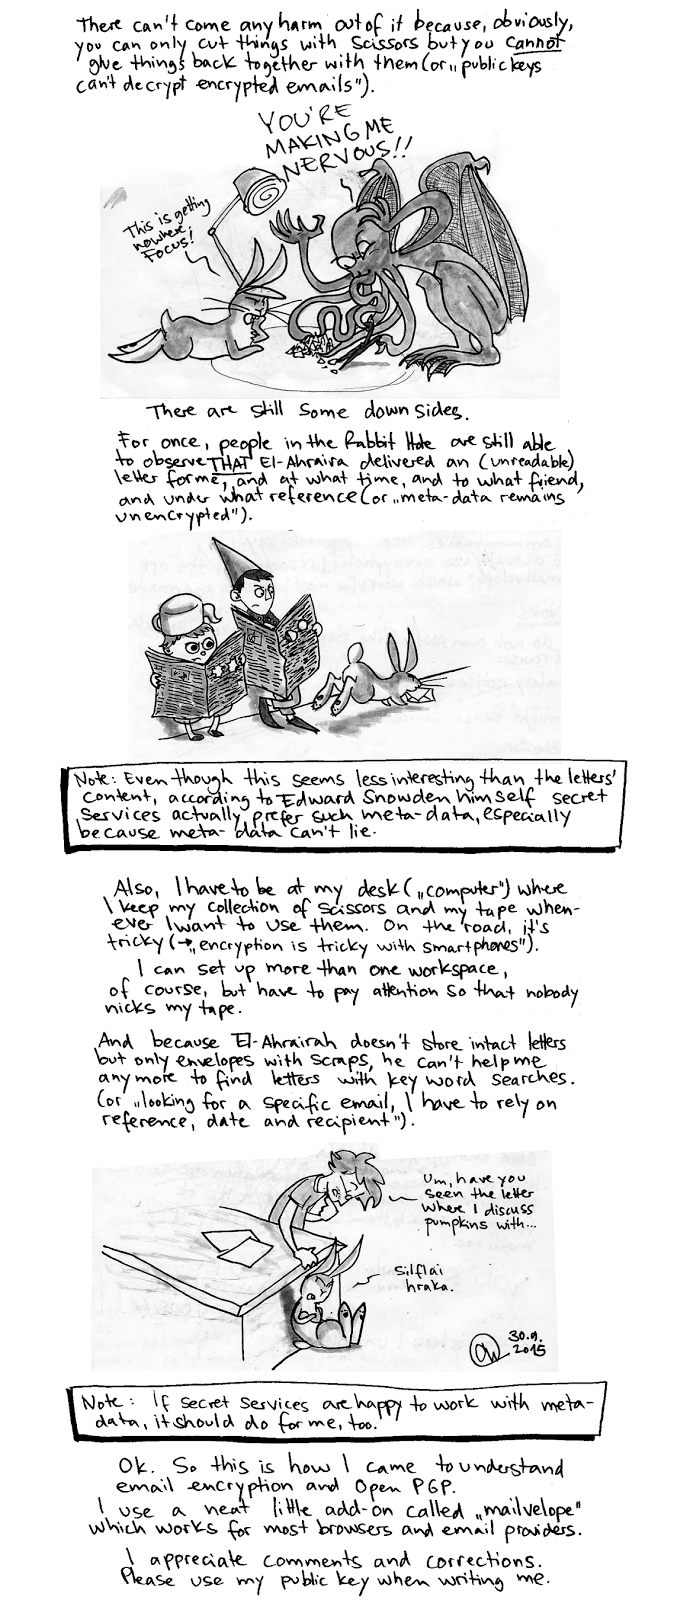 There can't come any harm out of it because, obviously,
you can only cut things with scissors but you cannot
glue things back together with them (or „public keys
can't decrypt encrypted emails").
YOU'RE
MAKING ME
NERVOUS!!
This is getting
nowhere;
Focus!
There are still some down sides.
For once, people in the Rabbit Hole are still able
to observe THAT El-Ahraira delivered an (unreadable)
letter for me, and at what time, and to what friend,
and under what reference (or „meta-data remains
unencrypted").
Note: Even though this seems less interesting than the letters'
content, according to Edward Snowden himself secret
services actually prefer such meta-data, especially
because meta-data can't lie.
Also, I have to be at my desk („computer") where
I keep my collection of scissors and my tape when-
ever I want to use them. On the road, it's
tricky (→„encryption is tricky with smartphones").
I can set up more than one workspace,
of course, but have to pay attention so that nobody
nicks my tape.
And because El-Ahrairah doesn't store intact letters
but only envelopes with scraps, he can't help me
anymore to find letters with key word searches.
(or „looking for a specific email, I have to rely on
reference, date and recipient").
Um, have you
seen the letter
where I discuss
pumpkins with...
Silflai
hraka.
30.9.
2015
Note: If secret services are happy to work with meta-
data, it should do for me, too.
Ok. So this is how I came to understand
email encryption and Open PGP.
I use a neat little add-on called „mailvelope"
which works for most browsers and email providers.
I appreciate comments and corrections.
Please use my public key when writing me.